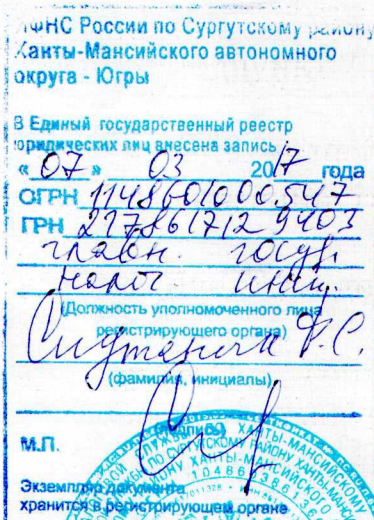 ИФНС России по Сургутскому району
Ханты-Мансийского автономного
округа - Югры
В Единый государственный реестр
юридических лиц внесена запись
« 07 » 03 2017 года
ОГРН 1148601000547
ГРН 2178617129403
главн. госуд.
налог инсп.
(Должность уполномоченного лица
регистрирующего органа)
Ф.С.
(фамилия, инициалы)
(подпись)
М.П.
Экземпляр документа
хранится в регистрирующем органе